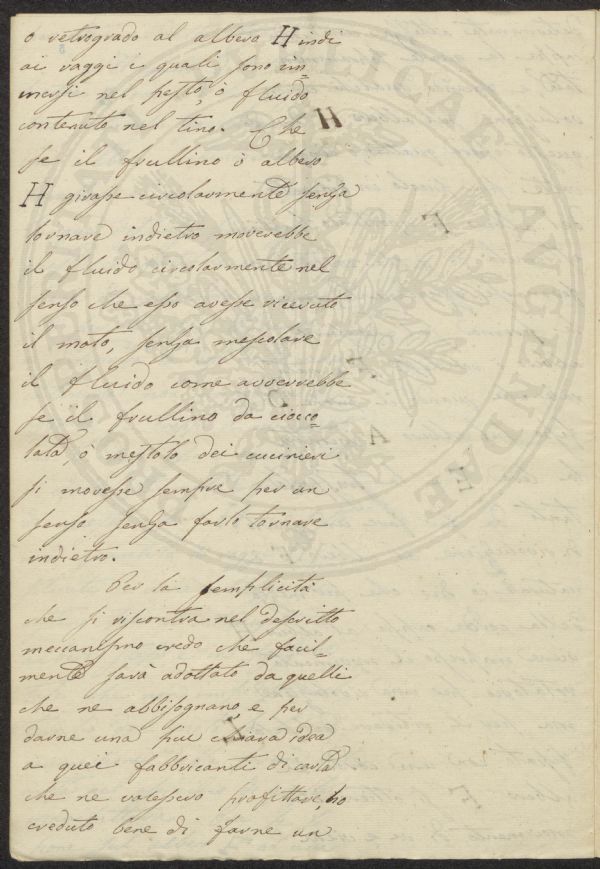 o retrogrado al albero H indi
ai raggi i quali sono im-
mersi nel pesto, ò fluido
contenuto nel tino. Che
se il frullino ò albero
H girasse circolarmente senza
tornare indietro moverebbe
il fluido circolarmente nel
senso che esso avesse ricevuto
il moto, senza mescolare
il fluido come avverrebbe
se il frullino da ciocco-
lata, ò mestolo dei cucinieri
si movesse sempre per un
senso senza farlo tornare
indietro.
Per la semplicità
che si riscontra nel descritto
meccanismo credo che facil-
mente sarà adottato da quelli
che ne abbisognano, e per
darne una più chiara idea
a quei fabbricanti di carta
che ne volessero profittare, ho
creduto bene di farne un